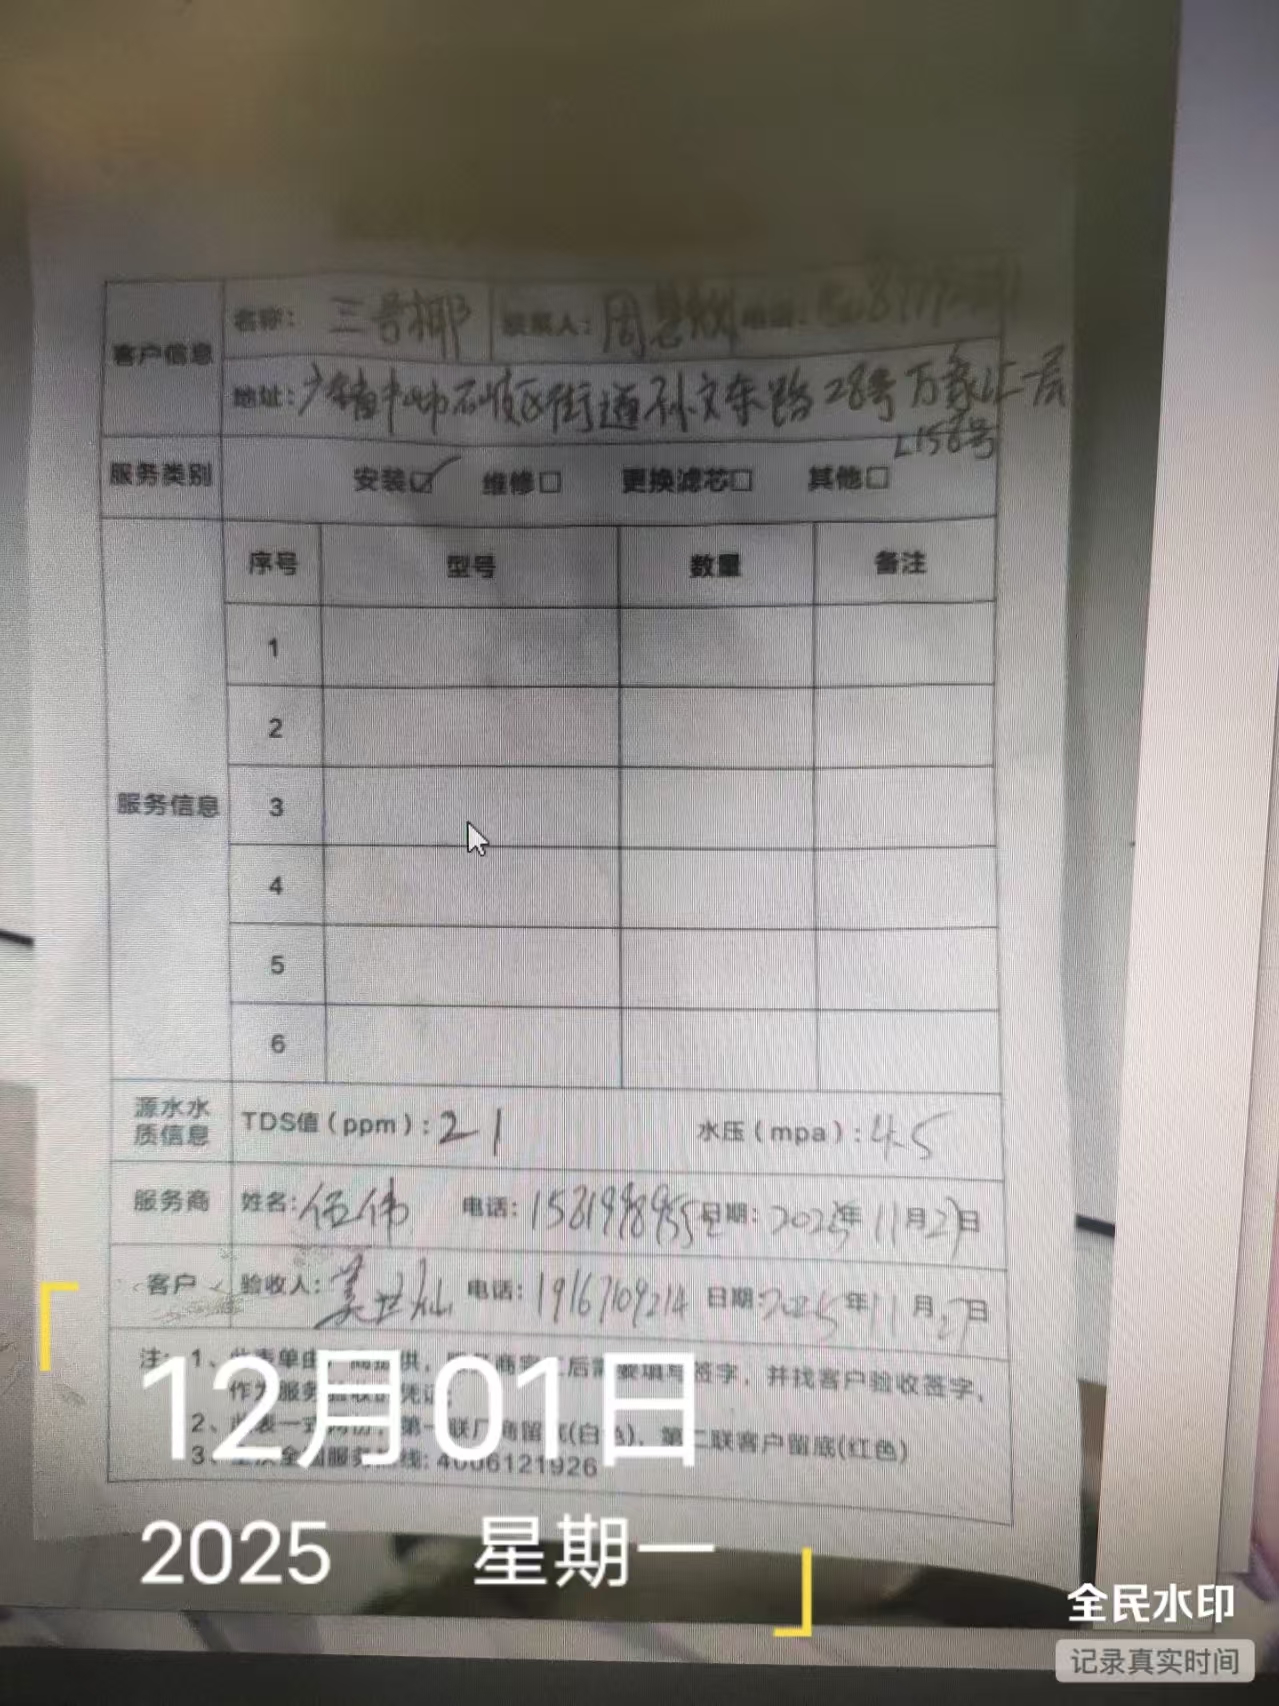 客户信息 名称: 三号椰 联系人: 周 电话:
地址: 广东省中山市石岐区街道孙文东路28号万象汇一层
L158号
服务类别 安装☑ 维修□ 更换滤芯□ 其他□
服务信息 序号 型号 数量 备注
1
2
3
4
5
6
源水水质信息 TDS值(ppm): 21 水压(mpa): 4.5
服务商 姓名: 伍伟 电话: 日期: 2025年11月27日
客户 验收人: 电话: 19167109214 日期: 2025年11月27日
注: 1、此表单由 提供, 服务商完工后需要填写签字, 并找客户验收签字,
作为服务验收的凭证;
2、此表一式两份, 第一联厂商留底(白色), 第二联客户留底(红色)
3、 全国服务热线: 4006121926
12月01日
2025 星期一
全民水印
记录真实时间